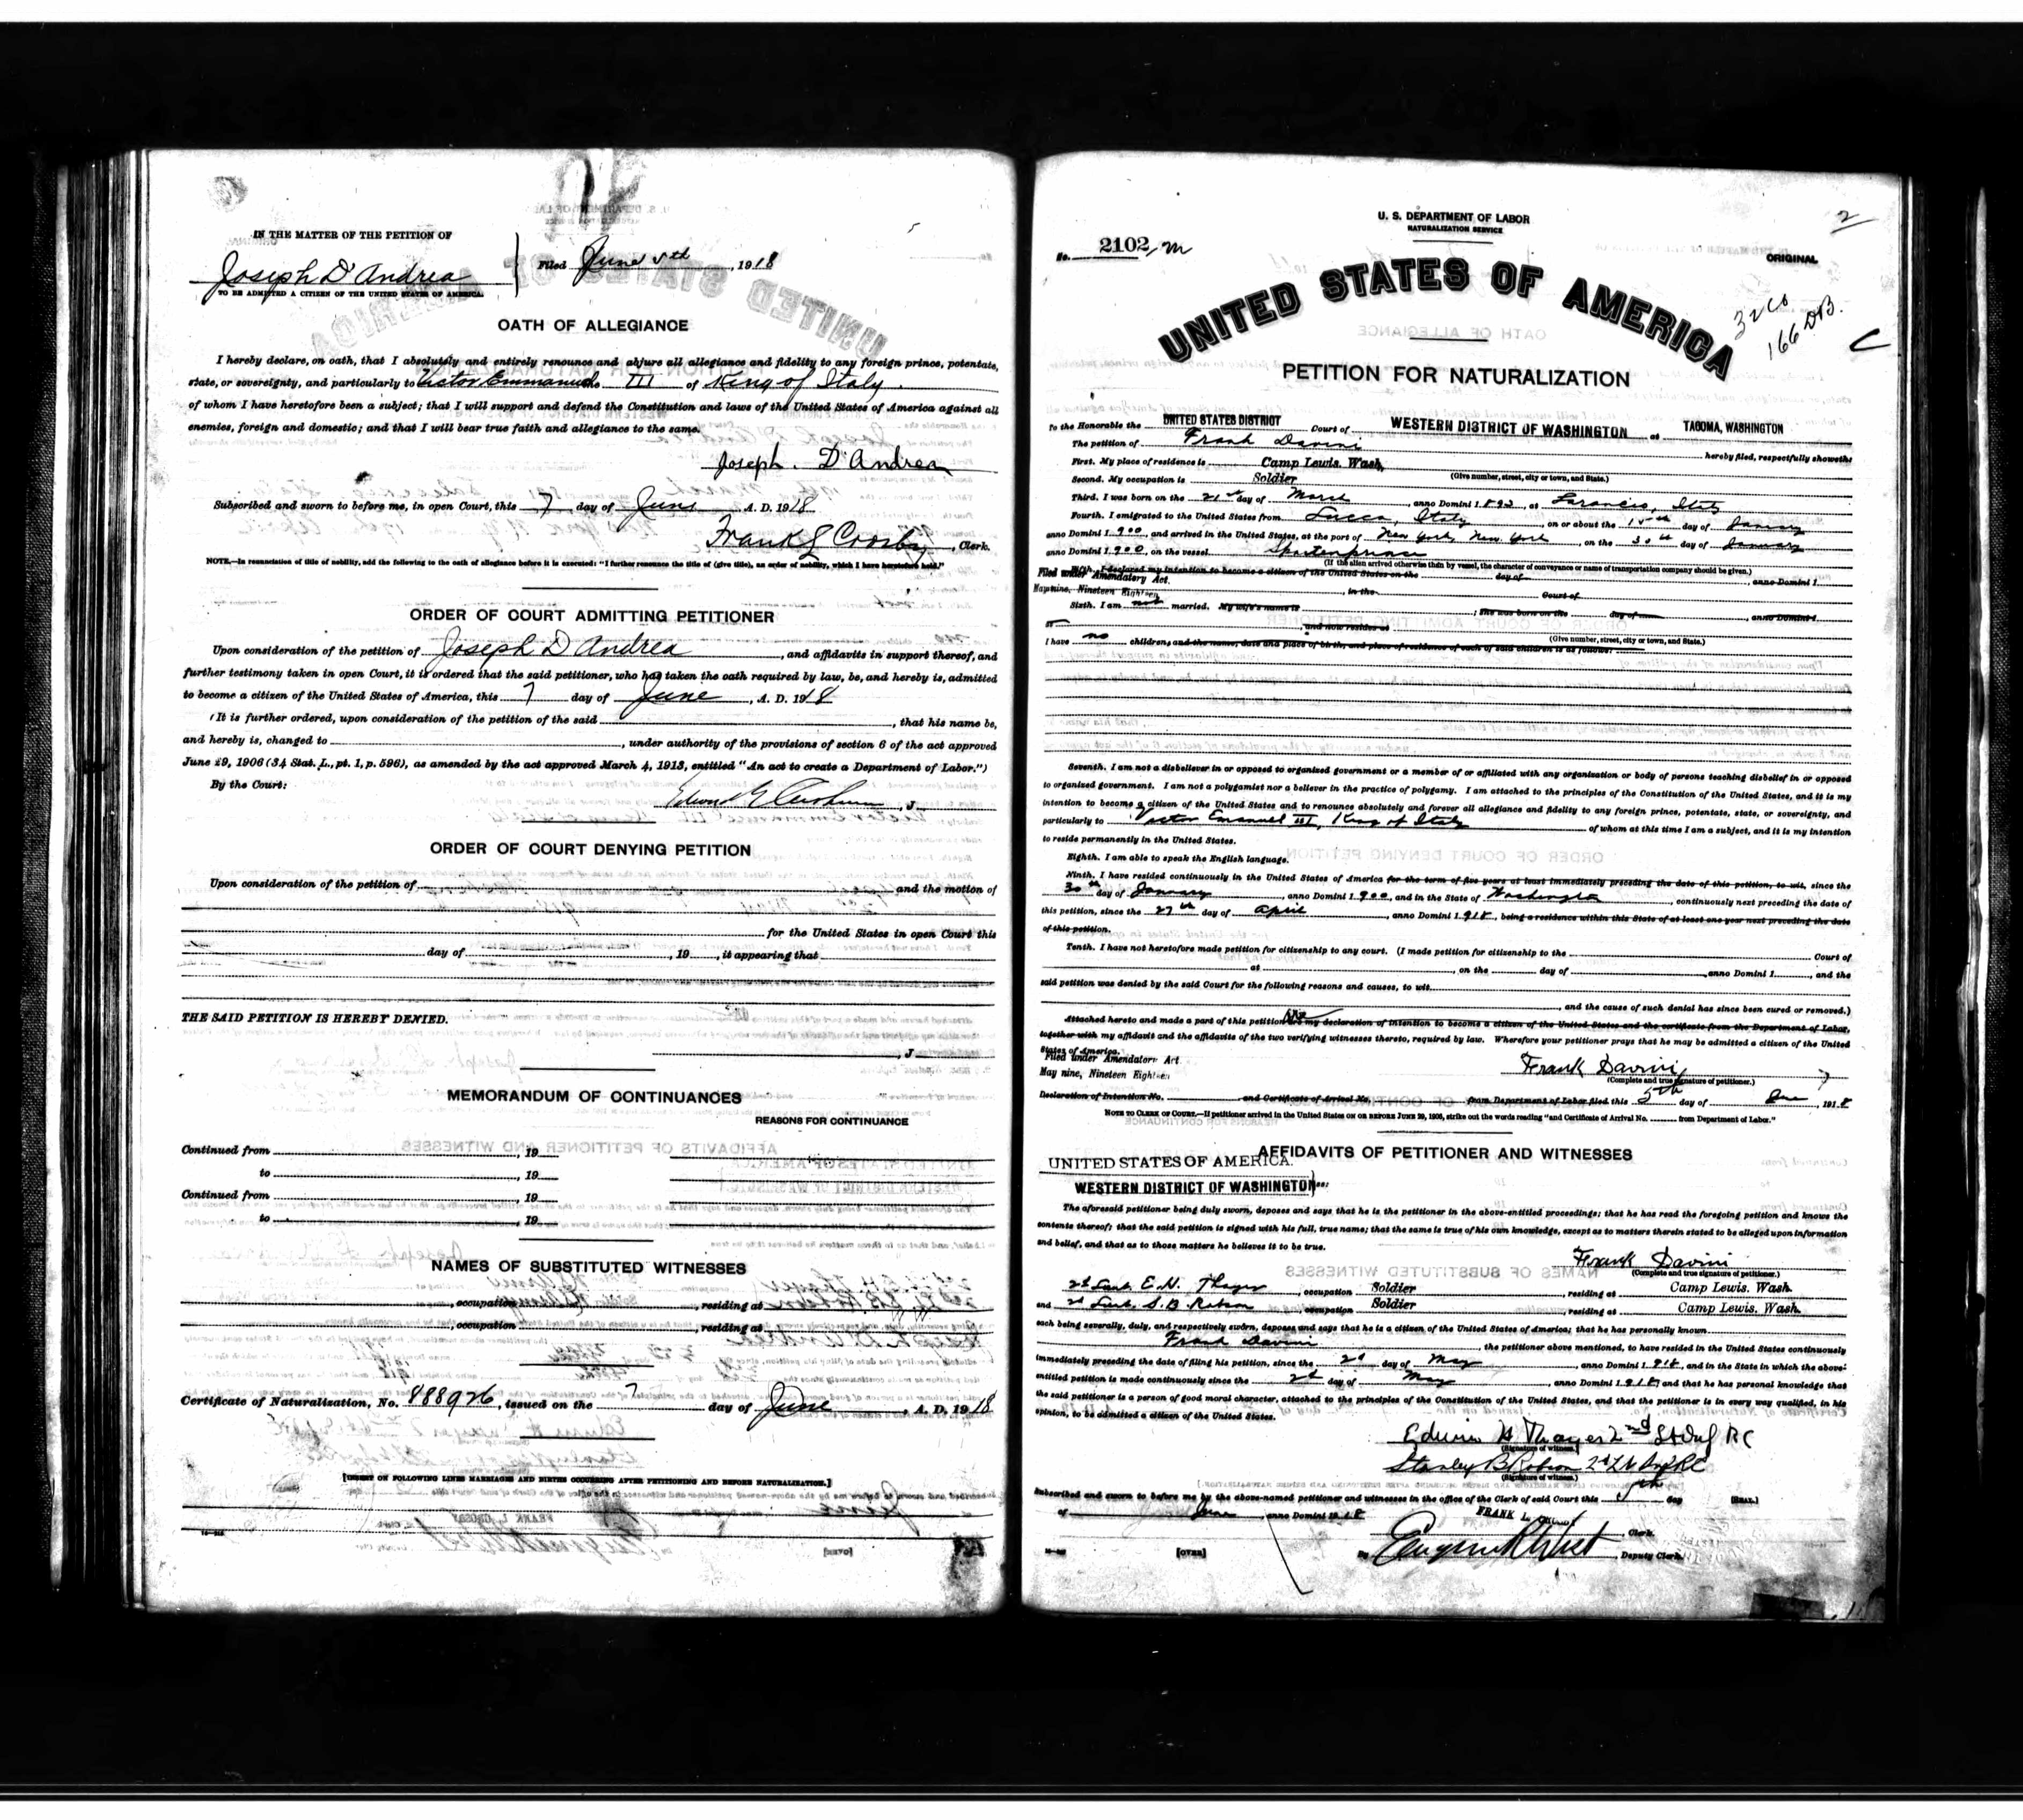 IN THE MATTER OF THE PETITION OF
Joseph D'Andrea
Filed June 5th, 1918
TO BE ADMITTED A CITIZEN OF THE UNITED STATES OF AMERICA.
OATH OF ALLEGIANCE
I hereby declare, on oath, that I absolutely and entirely renounce and abjure all allegiance and fidelity to any foreign prince, potentate,
state, or sovereignty, and particularly to Victor Emmanuel III of King of Italy
of whom I have heretofore been a subject; that I will support and defend the Constitution and laws of the United States of America against all
enemies, foreign and domestic; and that I will bear true faith and allegiance to the same.
Joseph. D'Andrea
Subscribed and sworn to before me, in open Court, this 7 day of June A. D. 1918
Frank L Crosby, Clerk.
NOTE.—In renunciation of title of nobility, add the following to the oath of allegiance before it is executed: "I further renounce the title of (give title), an order of nobility, which I have heretofore held."
ORDER OF COURT ADMITTING PETITIONER
Upon consideration of the petition of Joseph D Andrea, and affidavits in support thereof, and
further testimony taken in open Court, it is ordered that the said petitioner, who has taken the oath required by law, be, and hereby is, admitted
to become a citizen of the United States of America, this 7 day of June, A. D. 1918
(It is further ordered, upon consideration of the petition of the said , that his name be,
and hereby is, changed to , under authority of the provisions of section 6 of the act approved
June 29, 1906 (34 Stat. L., pt. 1, p. 596), as amended by the act approved March 4, 1913, entitled "An act to create a Department of Labor.")
By the Court:
Edward E Cushman, J.
ORDER OF COURT DENYING PETITION
Upon consideration of the petition of and the motion of
for the United States in open Court this
day of , 19 , it appearing that
THE SAID PETITION IS HEREBY DENIED.
J.
MEMORANDUM OF CONTINUANCES
REASONS FOR CONTINUANCE
Continued from , 19
to , 19
Continued from , 19
to , 19
NAMES OF SUBSTITUTED WITNESSES
, occupation , residing at
, occupation , residing at
Certificate of Naturalization, No. 888926, issued on the 7 day of June, A. D. 1918
[INSERT ON FOLLOWING LINES MARRIAGES AND BIRTHS OCCURRING AFTER PETITIONING AND BEFORE NATURALIZATION.]
[OVER]
2
U. S. DEPARTMENT OF LABOR
NATURALIZATION SERVICE
No. 2102 m
ORIGINAL
UNITED STATES OF AMERICA
32 Co
166 DB.
C
PETITION FOR NATURALIZATION
To the Honorable the UNITED STATES DISTRICT Court of WESTERN DISTRICT OF WASHINGTON at TACOMA, WASHINGTON
The petition of Frank Davini hereby filed, respectfully showeth:
First. My place of residence is Camp Lewis. Wash.
(Give number, street, city or town, and State.)
Second. My occupation is Soldier
Third. I was born on the 21st day of March, anno Domini 1893, at Italy
Fourth. I emigrated to the United States from Lucca, Italy, on or about the 15th day of January
anno Domini 1900, and arrived in the United States, at the port of New York, New York, on the 30th day of January
anno Domini 1900, on the vessel Spartanprince
(If the alien arrived otherwise than by vessel, the character of conveyance or name of transportation company should be given.)
Fifth. I declared my intention to become a citizen of the United States on the day of anno Domini 1
Filed under Amendatory Act.
May nine, Nineteen Eighteen , in the Court of
Sixth. I am not married. My wife's name is ; she was born on the day of , anno Domini 1
at , and now resides at
(Give number, street, city or town, and State.)
I have no children, and the name, date and place of birth, and place of residence of each of said children is as follows:
Seventh. I am not a disbeliever in or opposed to organized government or a member of or affiliated with any organization or body of persons teaching disbelief in or opposed
to organized government. I am not a polygamist nor a believer in the practice of polygamy. I am attached to the principles of the Constitution of the United States, and it is my
intention to become a citizen of the United States and to renounce absolutely and forever all allegiance and fidelity to any foreign prince, potentate, state, or sovereignty, and
particularly to Victor Emanuel III, King of Italy of whom at this time I am a subject, and it is my intention
to reside permanently in the United States.
Eighth. I am able to speak the English language.
Ninth. I have resided continuously in the United States of America for the term of five years at least immediately preceding the date of this petition, to wit, since the
30th day of January, anno Domini 1900, and in the State of Washington, continuously next preceding the date of
this petition, since the 27th day of April, anno Domini 1918, being a residence within this State of at least one year next preceding the date
of this petition.
Tenth. I have not heretofore made petition for citizenship to any court. (I made petition for citizenship to the Court of
at , on the day of , anno Domini 1 , and the
said petition was denied by the said Court for the following reasons and causes, to wit
and the cause of such denial has since been cured or removed.)
Attached hereto and made a part of this petition are my declaration of intention to become a citizen of the United States and the certificate from the Department of Labor,
together with my affidavit and the affidavits of the two verifying witnesses thereto, required by law. Wherefore your petitioner prays that he may be admitted a citizen of the United
States of America.
Filed under Amendatory Act
May nine, Nineteen Eighteen
Frank Davini
(Complete and true signature of petitioner.)
Declaration of Intention No. and Certificate of Arrival No. from Department of Labor filed this 5th day of June, 1918
NOTE TO CLERK OF COURT.—If petitioner arrived in the United States ON OR BEFORE JUNE 29, 1906, strike out the words reading "and Certificate of Arrival No. from Department of Labor."
AFFIDAVITS OF PETITIONER AND WITNESSES
UNITED STATES OF AMERICA.
WESTERN DISTRICT OF WASHINGTON ss:
The aforesaid petitioner being duly sworn, deposes and says that he is the petitioner in the above-entitled proceedings; that he has read the foregoing petition and knows the
contents thereof; that the said petition is signed with his full, true name; that the same is true of his own knowledge, except as to matters therein stated to be alleged upon information
and belief, and that as to those matters he believes it to be true.
Frank Davini
(Complete and true signature of petitioner.)
2d Lieut. E. H. Thayer, occupation Soldier, residing at Camp Lewis. Wash.
and 2d Lieut. S. B. Robson, occupation Soldier, residing at Camp Lewis. Wash.
each being severally, duly, and respectively sworn, deposes and says that he is a citizen of the United States of America; that he has personally known
Frank Davini, the petitioner above mentioned, to have resided in the United States continuously
immediately preceding the date of filing his petition, since the 2d day of May, anno Domini 1918, and in the State in which the above-
entitled petition is made continuously since the 2d day of May, anno Domini 1918, and that he has personal knowledge that
the said petitioner is a person of good moral character, attached to the principles of the Constitution of the United States, and that the petitioner is in every way qualified, in his
opinion, to be admitted a citizen of the United States.
Edwin H Thayer 2nd Lt Inf RC
(Signature of witness.)
Stanley B Robson 2d Lt Inf RC
(Signature of witness.)
Subscribed and sworn to before me by the above-named petitioner and witnesses in the office of the Clerk of said Court this 5th day [SEAL.]
of June, anno Domini 1918
FRANK L. CROSBY, Clerk.
[OVER]
By Eugene R West, Deputy Clerk.